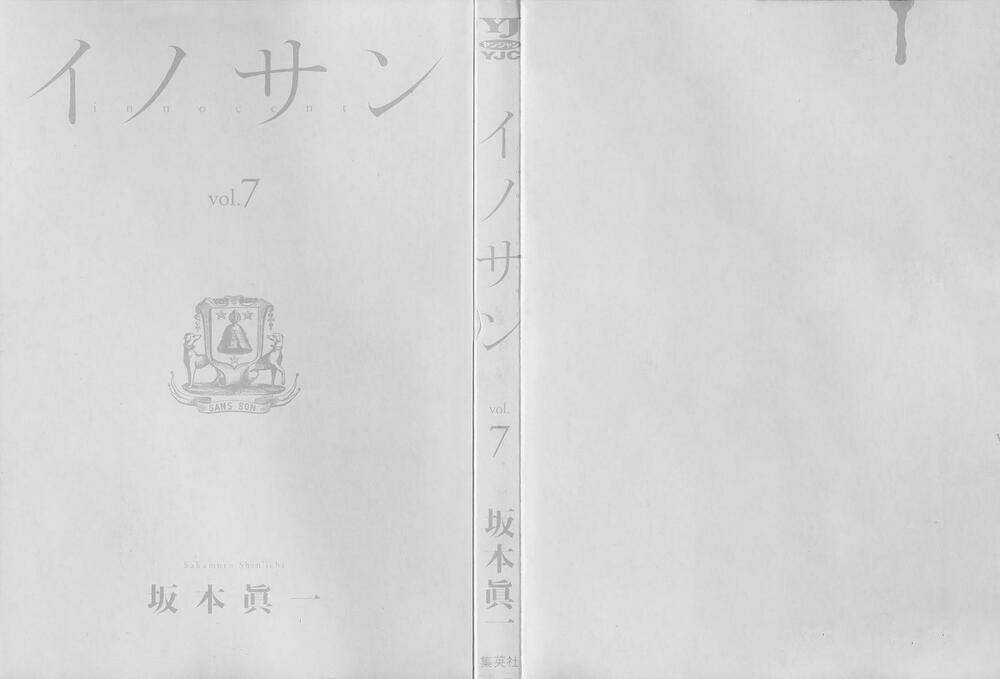 イノサン
innocent
vol.7
SANS SON
Sakamoto Shin'ichi
坂本眞一
YJ
ヤングジャンプ
YJC
イノサン
vol.
7
坂本眞一
集英社